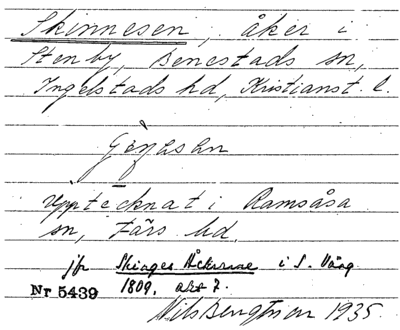 Skinnesen, åker i
Stenby, Benestads sn,
Ingelstads hd, Kristianst l.
Upptecknat i Ramsåsa
sn, Färs hd.
jfr Skiages Åckrarne i S. Vång
Nr 5439 1809, akt 7.
Nils Bengtsson 1935.